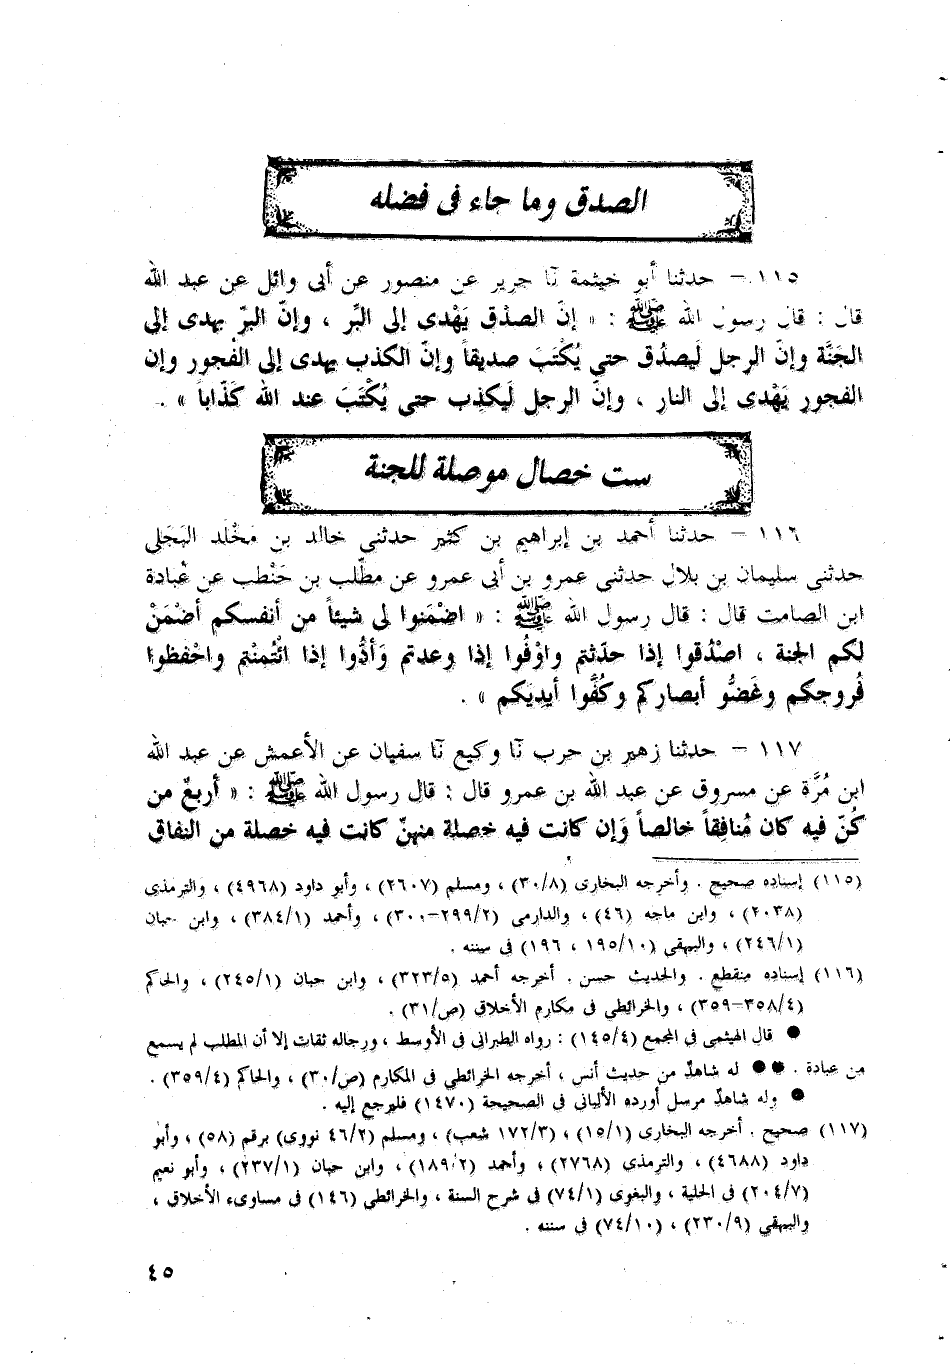 الصدق وما جاء فى فضله
١١٥ – حدثنا أبو خيثمة نَا جرير عن منصور عن أبى وائل عن عبد الله
قال : قال رسول الله ﷺ : « إنَّ الصدْق يَهْدى إلى البَّر ، وإنَّ البرّ يهدى إلى
الجنَّة وإنَّ الرجل لَيصدُق حتى يُكْتَبَ صديقاً وإنّ الكذب يهدى إلى الفجور وإن
الفجور يَهْدى إلى النار ، وإنَّ الرجل لَيكذِب حتى يُكْتَبَ عند الله كَذَّاباً » .
ست خصال موصلة للجنة
١١٦ – حدثنا أحمد بن إبراهيم بن كثير حدثنى خالد بن مَخْلد البَجَلى
حدثنى سليمان بن بلال حدثنى عمرو بن أبى عمرو عن مطَّلب بن حَنْطب عن عُبادة
ابن الصامت قال : قال رسول الله ﷺ : « اضْمَنوا لى شيئاً من أنفسكم أضْمَنْ
لكم الجنة ، اصْدُقوا إذا حدّثتم واوْفُوا إذا وعدتم وَأدُّوا إذا ائْتُمنْتم واحْفظوا
فُروجكم وغَضُّو أبصاركم وكُفَّوا أيديَكم » .
١١٧ – حدثنا زهير بن حرب نَا وكيع نَا سفيان عن الأعمش عن عبد الله
ابن مُرَّة عن مسروق عن عبد الله بن عمرو قال : قال رسول الله ﷺ : « أربعٌ من
كُنّ فيه كان مُنافِقاً خالصاً وَإن كانت فيه خصلة منهنّ كانت فيه خصلة من النفاق
(١١٥) إسناده صحيح . وأخرجه البخارى (٣٠/٨) ، ومسلم (٢٦٠٧) ، وأبو داود (٤٩٦٨) ، والترمذى
(٢٠٣٨) ، وابن ماجه (٤٦) ، والدارمى (٢٩٩/٢-٣٠٠) ، وأحمد (٣٨٤/١) ، وابن حبان
(٢٤٦/١) ، والبيهقى (١٩٥/١٠ ، ١٩٦) فى سننه .
(١١٦) إسناده منقطع . والحديث حسن . أخرجه أحمد (٣٢٣/٥) ، وابن حبان (٢٤٥/١) ، والحاكم
(٣٥٨/٤-٣٥٩) ، والخرائطى فى مكارم الأخلاق (ص/٣١) .
● قال الهيثمى فى المجمع (١٤٥/٤) : رواه الطبرانى فى الأوسط ، ورجاله ثقات إلا أن المطلب لم يسمع
من عبادة . ●● له شاهدٌ من حديث أنس ، أخرجه الخرائطى فى المكارم (ص/٣٠) ، والحاكم (٣٥٩/٤) .
● وله شاهدٌ مرسل أورده الألبانى فى الصحيحة (١٤٧٠) فليرجع إليه .
(١١٧) صحيح . أخرجه البخارى (١٥/١) ، (١٧٢/٣ شعب) ، ومسلم (٤٦/٢ نووى) برقم (٥٨) ، وأبو
داود (٤٦٨٨) ، والترمذى (٢٧٦٨) ، وأحمد (١٨٩/٢) ، وابن حبان (٢٣٧/١) ، وأبو نعيم
(٢٠٤/٧) فى الحلية ، والبغوى (٧٤/١) فى شرح السنة ، والخرائطى (١٤٦) فى مساوىء الأخلاق ،
والبيهقى (٢٣٠/٩) ، (٧٤/١٠) فى سننه .
٤٥